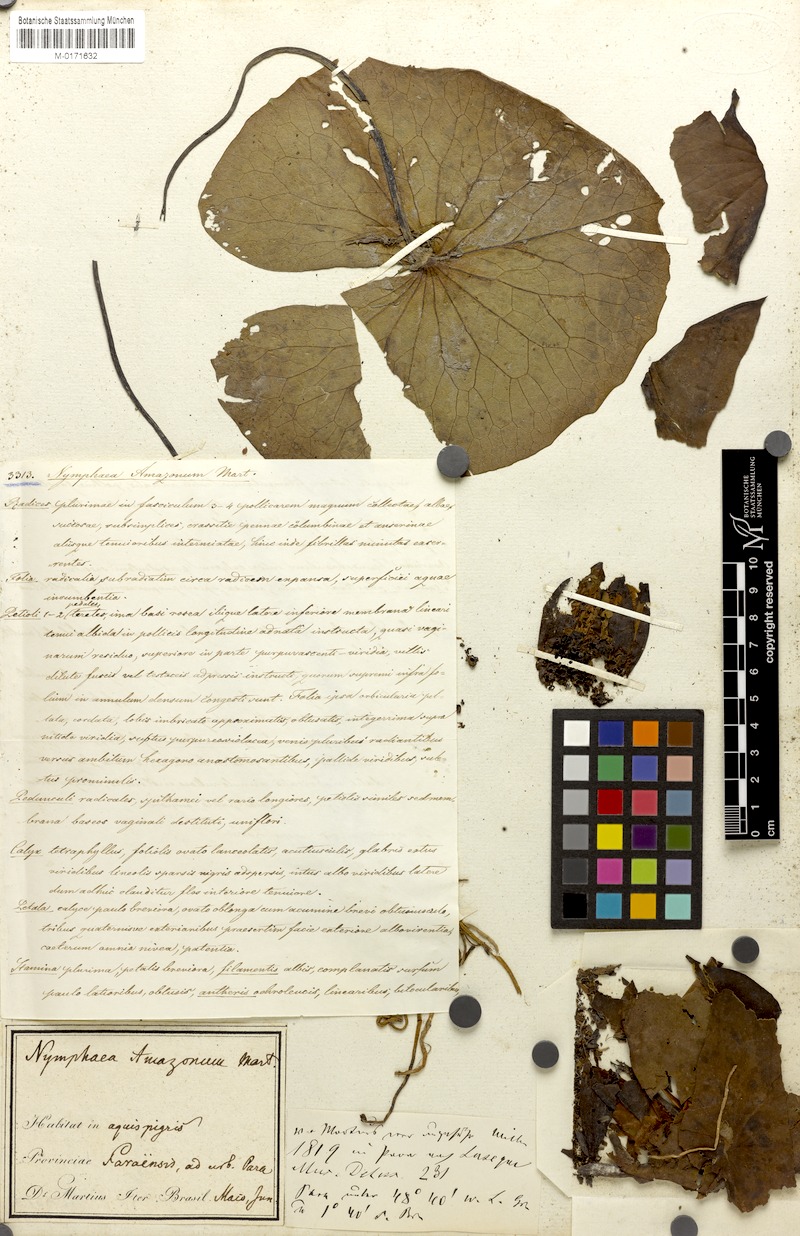 Botanische Staatssammlung München
M-0171632
3313. Nymphaea Amazonum Mart.
Radices plurimae in fasciculum 3-4 pollicarem magnum collectae, albae,
succosae, subsimplices, crassitie pennae columbinae et anserinae
aliisque tenuioribus intermixtae, hinc inde fibrillas minutas exser-
entes.
Folia radicalia subradiatim circa radicem expansa, superficiei aquae
incumbentia.
Petioli 1-2 pedales, teretes, ima basi rosea ibique latere inferiore membrana lineari
tenui albida in pollicis longitudine adnata instructa, quasi vagi-
narum residuo, superiore in parte purpurascenti-viridia, villis
dilute fuscis vel testaceis adpressis instructi, quorum supremi infra fo-
lium in annulum densum congesti sunt. Folia ipsa orbicularia, pel-
tata, cordata, lobis imbricato approximatis, obtusatis, integerrima supra
nitide viridia, subtus purpureoviolacea, venis pluribus radiantibus
versus ambitum hexagono anastomosantibus, pallide viridibus, sub-
tus prominulis.
Pedunculi radicales, spithamei vel raro longiores, petiolis similes sed mem-
brana baseos vaginali destituti, uniflori.
Calyx tetraphyllus, foliolis ovato lanceolatis, acutiusculis, glabris extus
viridibus lineolis sparsis nigris adspersis, intus albo viridibus latere
dum adhuc clauditur flos interiore tenuiore.
Petala calyce paulo breviora, ovato oblonga cum acumine brevi obtusiusculo,
tribus quaternisve exterioribus praesertim facie exteriore albovirentia,
caeterum omnia nivea, patentia.
Stamina plurima, petalis breviora, filamentis albis, complanatis sursum
paulo latioribus, obtusis, antheris ochroleucis, linearibus, bilocularibus
Nymphaea Amazonum Mart.
Habitat in aquis pigris
Provinciae Paraënsis, ad urb. Para
Dr. Martius Iter Brasil. Majo, Jun
Martius war
1819 in Para
Mus. Deless. 231
Para unter 48° 40' w. L.
1° 40' s. Br
BOTANISCHE
STAATSSAMMLUNG
MÜNCHEN
0 1 2 3 4 5 6 7 8 9 10
cm
copyright reserved